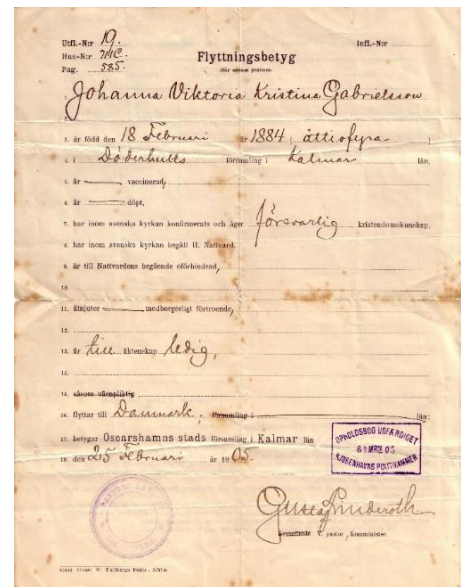 Utfl.-N:r 19.
Infl.-N:r
Hus-N:r 71C.
Pag. 585.
Flyttningsbetyg
(för ensam person).
Johanna Viktoria Kristina Gabrielsson
2. är född den 18 Februari år 1884 (åttiofyra)
4. i Döderhults församling i Kalmar län,
5. är vaccinerad,
6. är döpt,
7. har inom svenska kyrkan konfirmerats och äger försvarlig kristendomskunskap,
8. har inom svenska kyrkan begått H. Nattvard.
9. är till Nattvardens begående oförhindrad,
10.
11. åtnjuter medborgerligt förtroende,
12.
13. är till äktenskap ledig,
14.
15. såsom värnpliktig
16. flyttar till Danmark, församling i län;
17. betygar Oscarshamns stads församling i Kalmar län
18. den 25 Februari år 1905.
OPHOLDSBOG UDFÆRDIGET
KJØBENHAVNS POLITIKAMMER
Gustaf Linderoth
v. pastor, Komminister